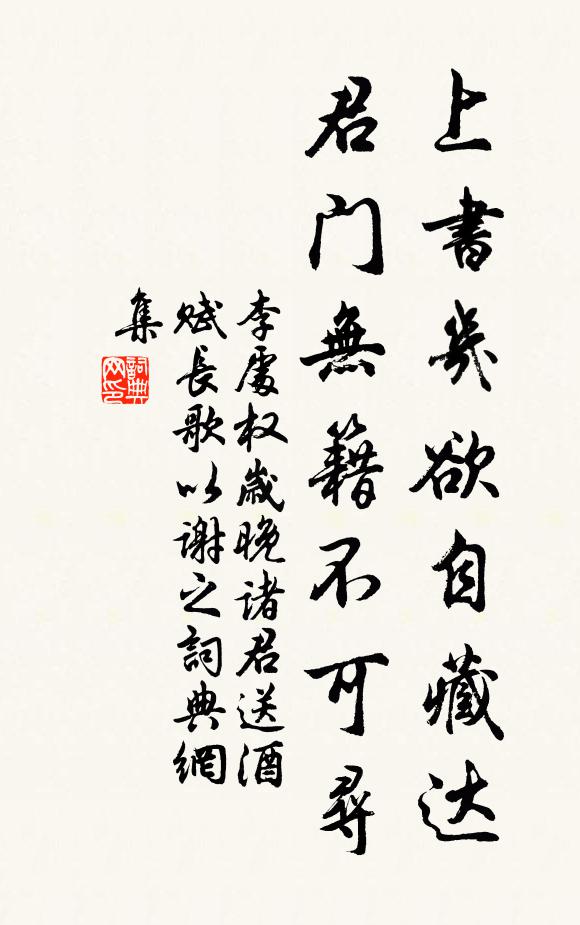 上書幾欲自藏达
君門無籍不可尋
李處权歲晚諸君送酒
賦長歌以謝之詞典網
集
詞典网印